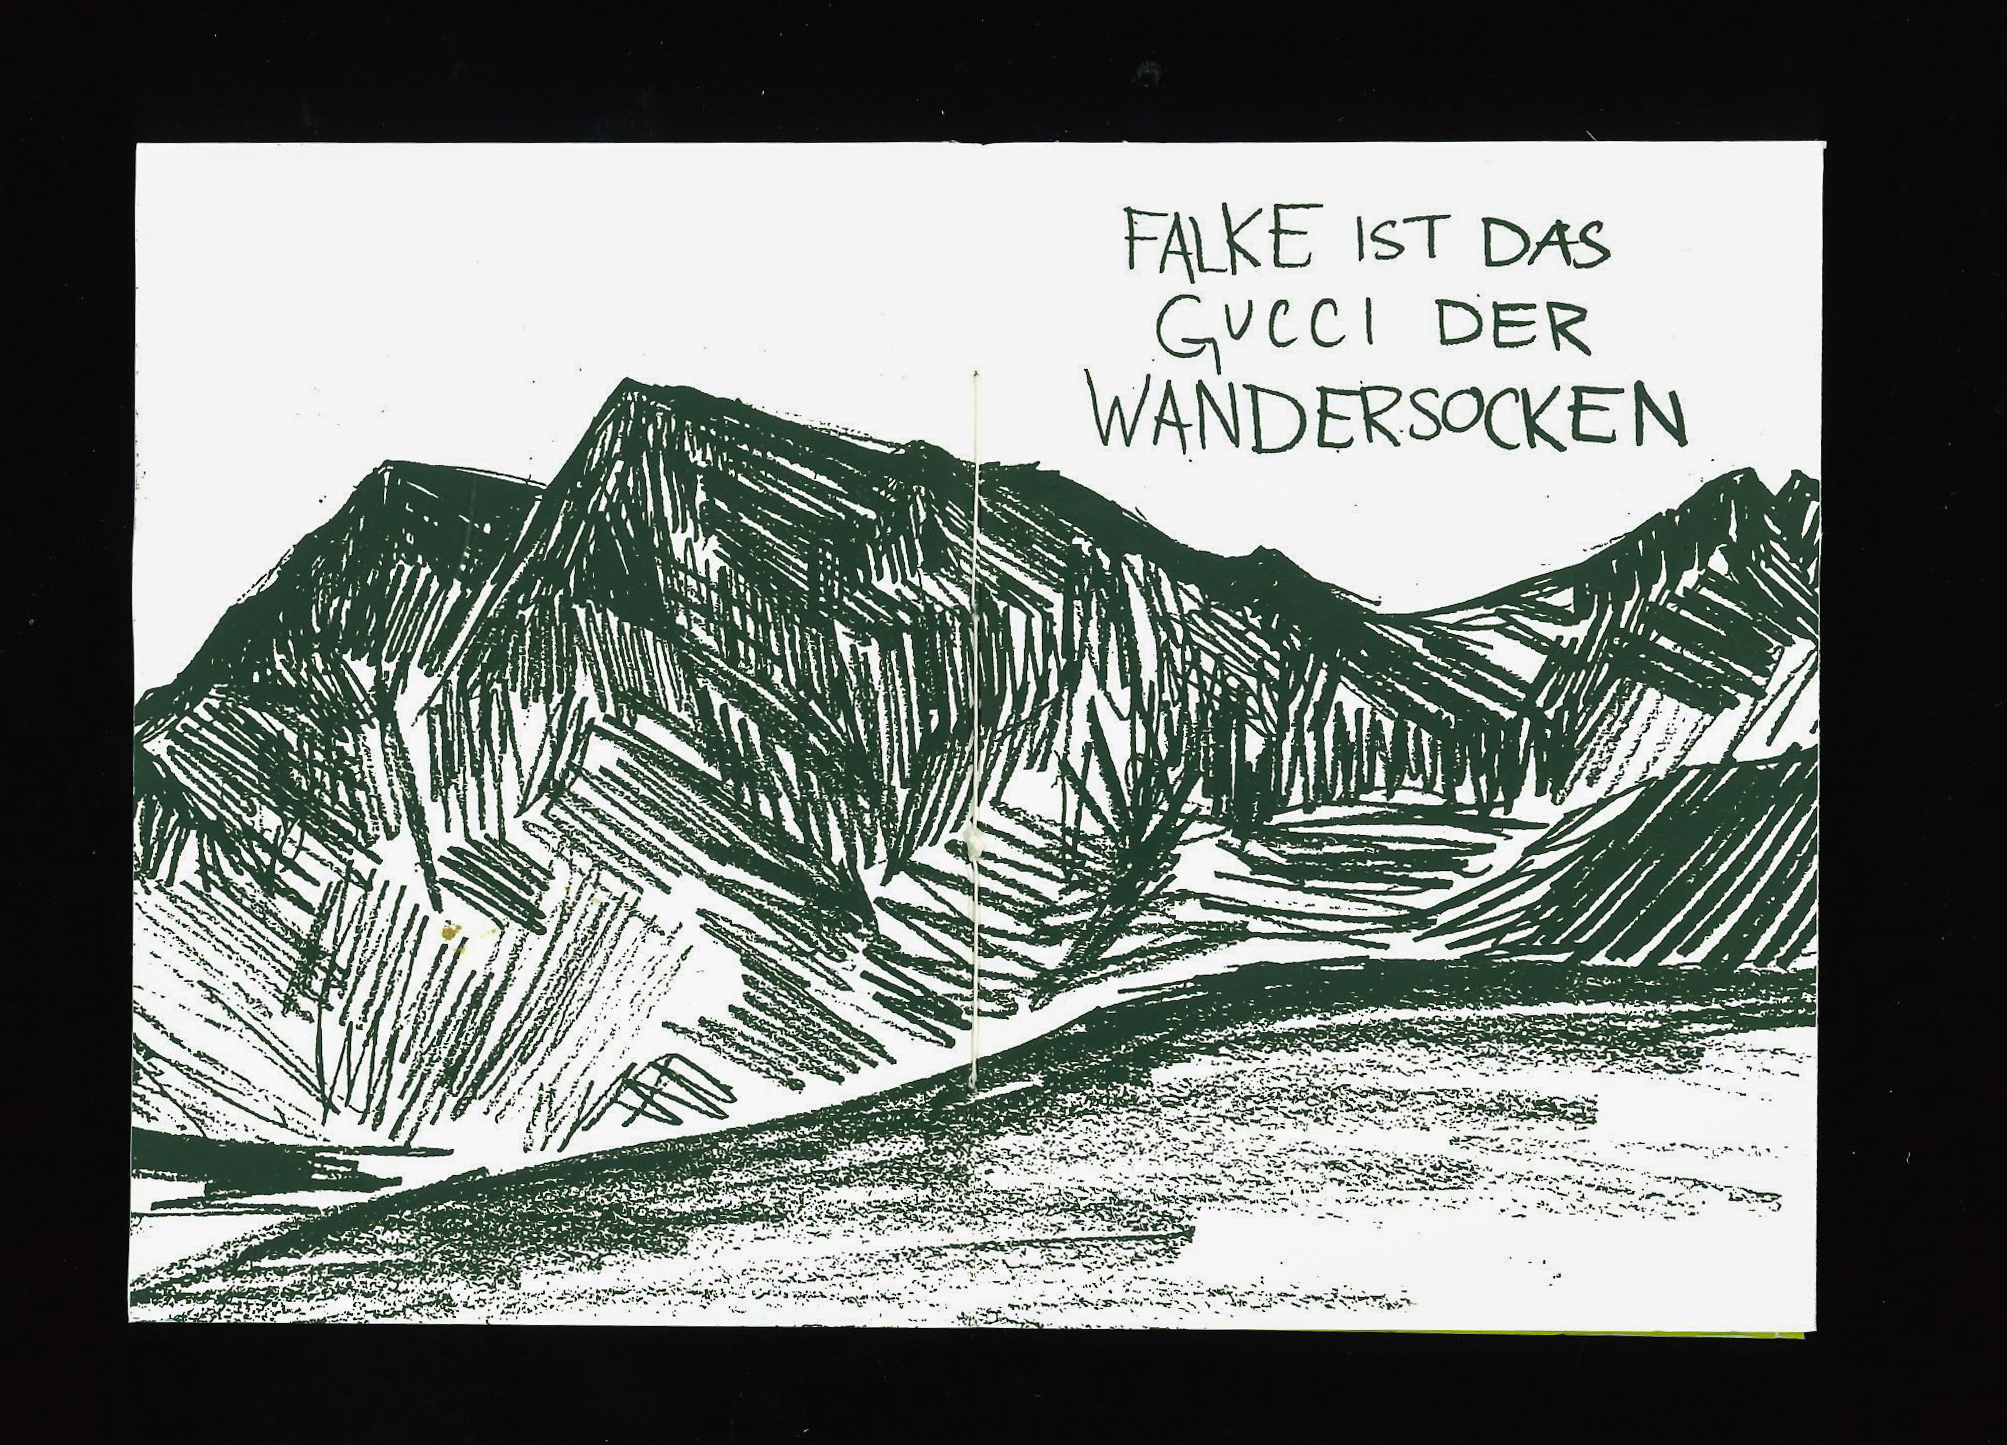 FALKE IST DAS
GUCCI DER
WANDERSOCKEN